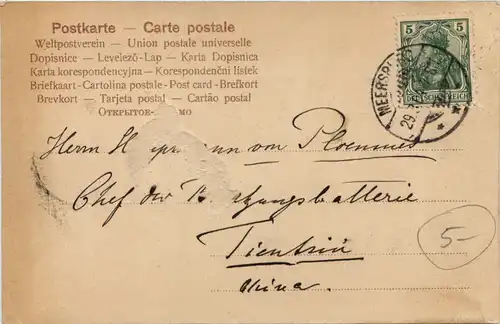 Postkarte — Carte postale
Weltpostverein — Union postale universelle
Dopisnice — Levelező-Lap — Karta Dopisnica
Karta korespondencyjna — Korespondenční lístek
Briefkaart - Cartolina postale - Post card - Brefkort
Brevkort — Tarjeta postal — Cartão postal
5 5
DEUTSCHES REICH
MEERSB
29.
Herrn von Ploennies
Chef der
Tientsin
China.
5-